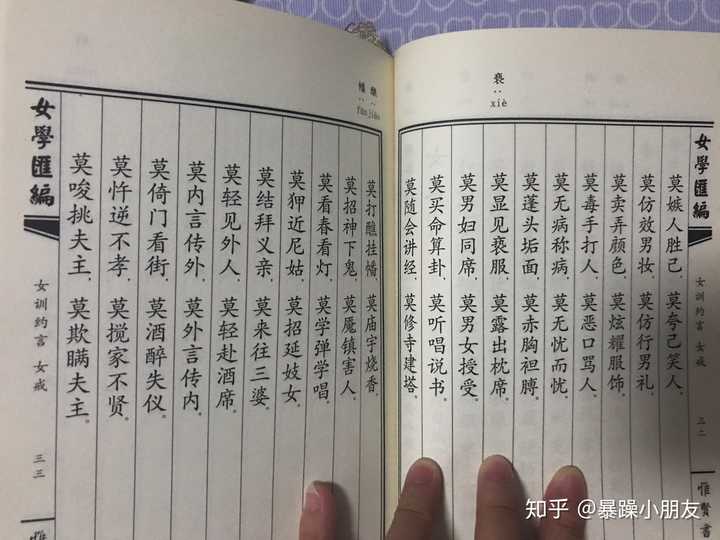 女學匯編
女训约言 女戒
三二
惟賢書
亵
xiè
莫嫉人胜己，莫夸己笑人。
莫仿效男妆，莫仿行男礼。
莫卖弄颜色，莫炫耀服饰。
莫毒手打人，莫恶口骂人。
莫无病称病，莫无忧而忧。
莫蓬头垢面，莫赤胸袒膊。
莫显见亵服，莫露出枕席。
莫男妇同席，莫男女授受。
莫买命算卦，莫听唱说书。
莫随会讲经，莫修寺建塔。
醮 幡
jiào fān
莫打醮挂幡，莫庙宇烧香。
莫招神下鬼，莫魇镇害人。
莫看春看灯，莫学弹学唱。
莫狎近尼姑，莫招延妓女。
莫结拜义亲，莫来往三婆。
莫轻见外人，莫轻赴酒席。
莫内言传外，莫外言传内。
莫倚门看街，莫酒醉失仪。
莫忤逆不孝，莫搅家不贤。
莫唆挑夫主，莫欺瞒夫主。
女學匯編
女训约言 女戒
三三
惟
知乎 @暴躁小朋友